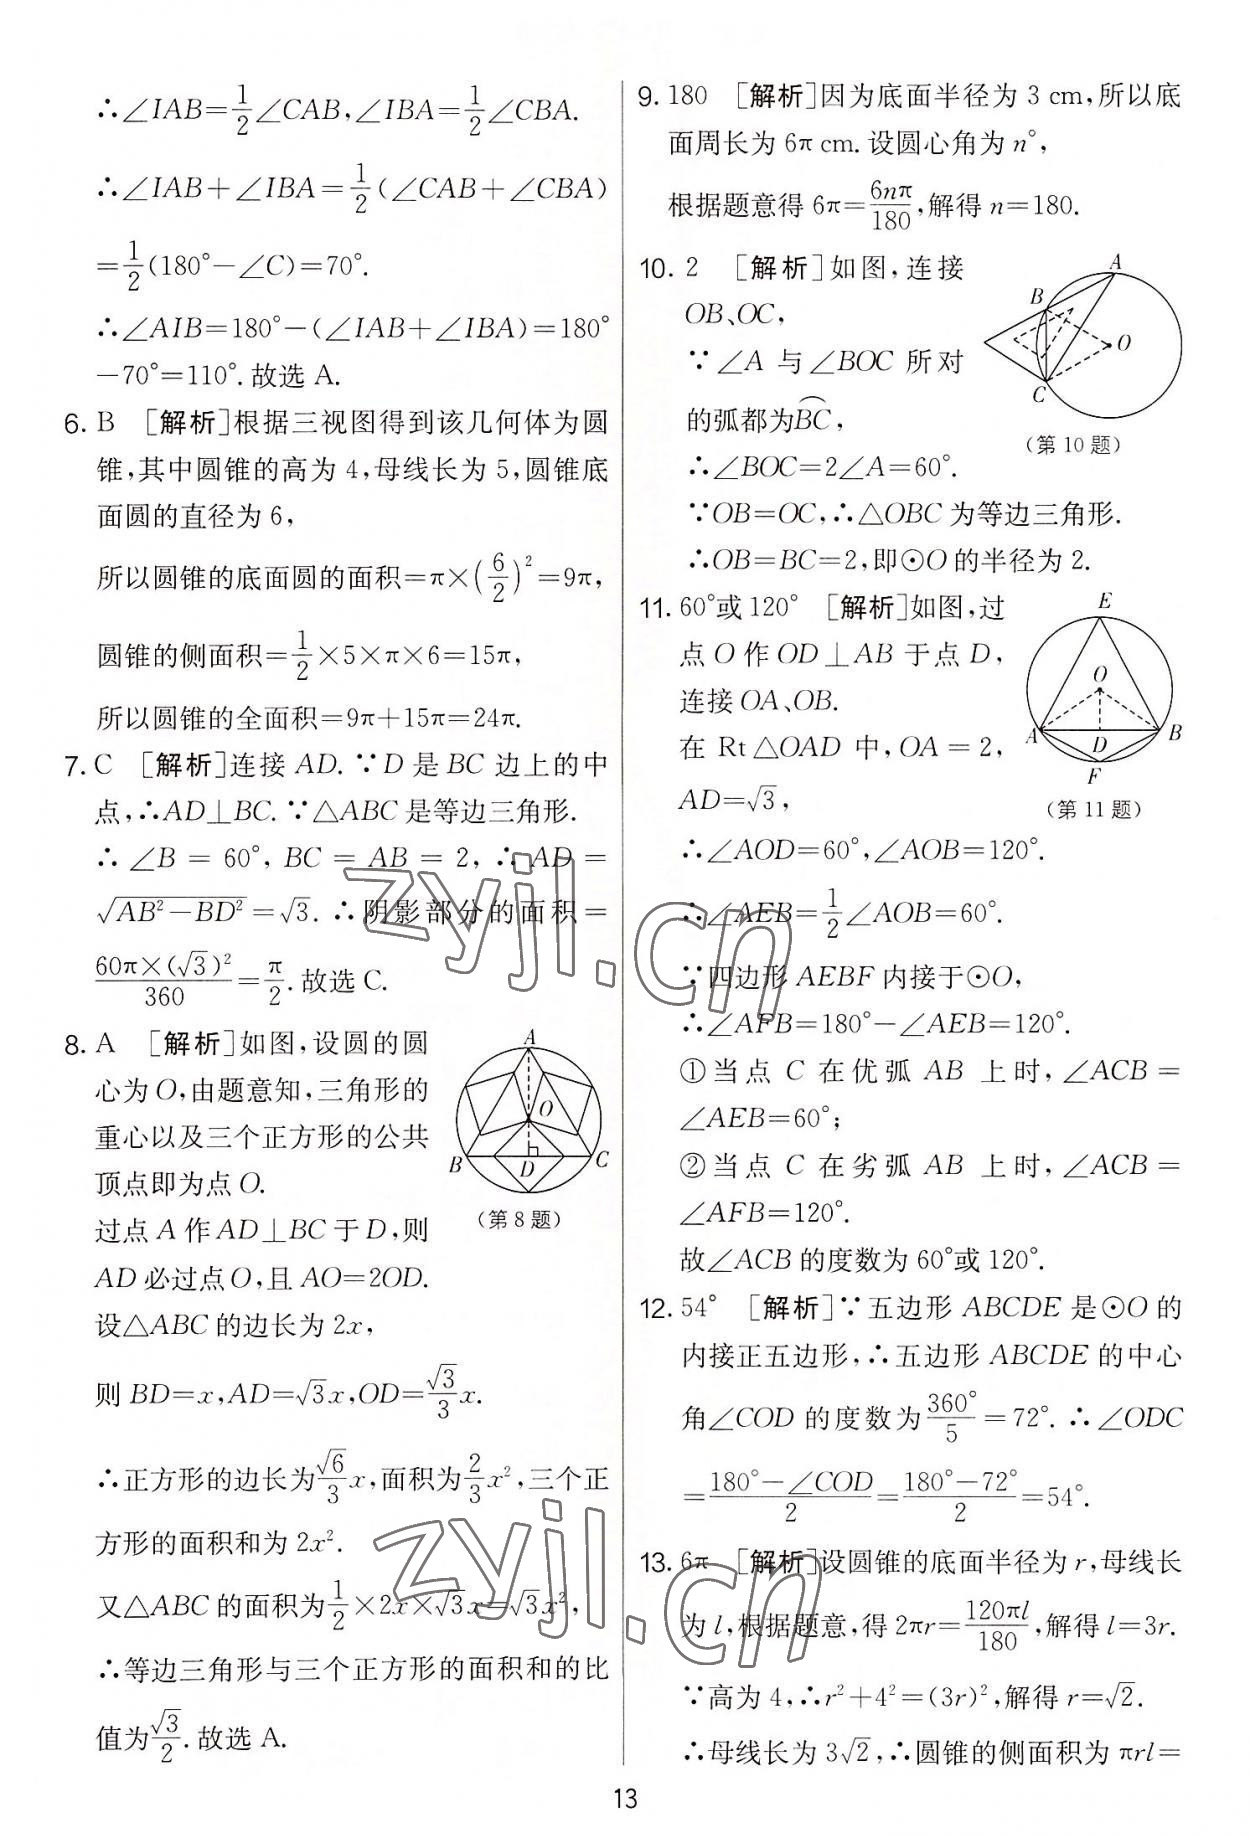 ∴∠IAB=1/2∠CAB,∠IBA=1/2∠CBA.
∴∠IAB+∠IBA=1/2(∠CAB+∠CBA)
=1/2(180°-∠C)=70°.
∴∠AIB=180°-(∠IAB+∠IBA)=180°
-70°=110°.故选 A.
6. B [解析]根据三视图得到该几何体为圆
锥,其中圆锥的高为 4,母线长为 5,圆锥底
面圆的直径为 6,
所以圆锥的底面圆的面积=π×(6/2)²=9π,
圆锥的侧面积=1/2×5×π×6=15π,
所以圆锥的全面积=9π+15π=24π.
7. C [解析]连接 AD.∵D 是 BC 边上的中
点,∴AD⊥BC.∵△ABC 是等边三角形.
∴∠B=60°,BC=AB=2,∴AD=
√(AB²-BD²)=√3.∴阴影部分的面积=
60π×(√3)²/360=π/2.故选 C.
8. A [解析]如图,设圆的圆
心为 O,由题意知,三角形的
重心以及三个正方形的公共
顶点即为点 O.
过点 A 作 AD⊥BC 于 D,则
AD 必过点 O,且 AO=2OD.
设△ABC 的边长为 2x,
则 BD=x,AD=√3x,OD=√3/3x.
∴正方形的边长为√6/3x,面积为2/3x²,三个正
方形的面积和为 2x².
又△ABC 的面积为1/2×2x×√3x=√3x²,
∴等边三角形与三个正方形的面积和的比
值为√3/2.故选 A.
A
O
B
D
C
(第 8 题)
9. 180 [解析]因为底面半径为 3 cm,所以底
面周长为 6π cm.设圆心角为 n°,
根据题意得 6π=6nπ/180,解得 n=180.
10. 2 [解析]如图,连接
OB、OC,
∵∠A 与∠BOC 所对
的弧都为B͡C,
∴∠BOC=2∠A=60°.
∵OB=OC,∴△OBC 为等边三角形.
∴OB=BC=2,即⊙O 的半径为 2.
A
B
O
C
(第 10 题)
11. 60°或 120° [解析]如图,过
点 O 作 OD⊥AB 于点 D,
连接 OA、OB.
在 Rt△OAD 中,OA=2,
AD=√3,
∴∠AOD=60°,∠AOB=120°.
∴∠AEB=1/2∠AOB=60°.
∵四边形 AEBF 内接于⊙O,
∴∠AFB=180°-∠AEB=120°.
①当点 C 在优弧 AB 上时,∠ACB=
∠AEB=60°;
②当点 C 在劣弧 AB 上时,∠ACB=
∠AFB=120°.
故∠ACB 的度数为 60°或 120°.
E
O
A
D
B
F
(第 11 题)
12. 54° [解析]∵五边形 ABCDE 是⊙O 的
内接正五边形,∴五边形 ABCDE 的中心
角∠COD 的度数为360°/5=72°.∴∠ODC
=(180°-∠COD)/2=(180°-72°)/2=54°.
13. 6π [解析]设圆锥的底面半径为 r,母线长
为 l,根据题意,得 2πr=120πl/180,解得 l=3r.
∵高为 4,∴r²+4²=(3r)²,解得 r=√2.
∴母线长为 3√2,∴圆锥的侧面积为 πrl=
zyjl.cn
zyjl.cn
13